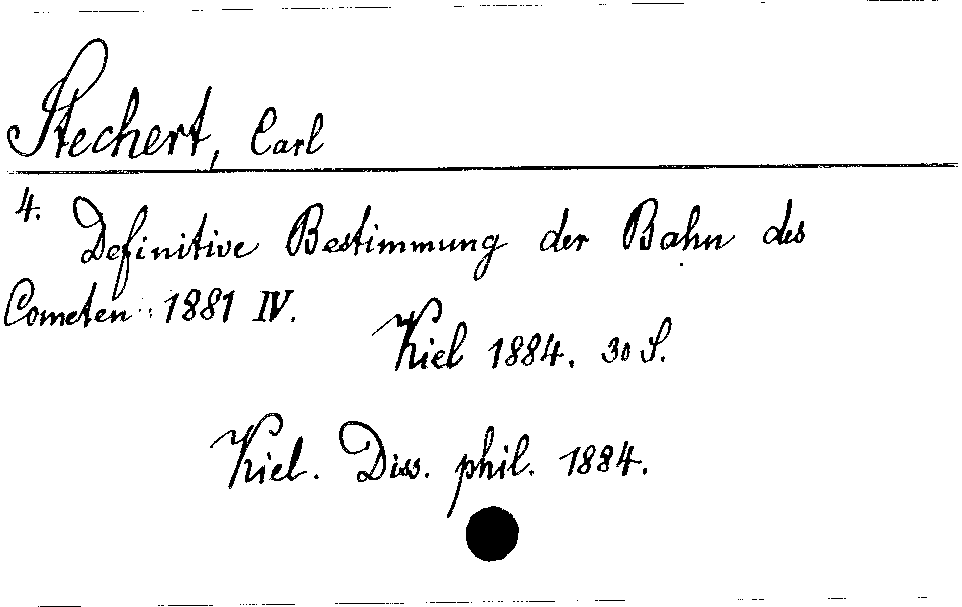 Stechert, Carl
4. Definitive Bestimmung der Bahn des
Cometen 1881 IV.
Kiel 1884. 30 S.
Kiel. Diss. phil. 1884.